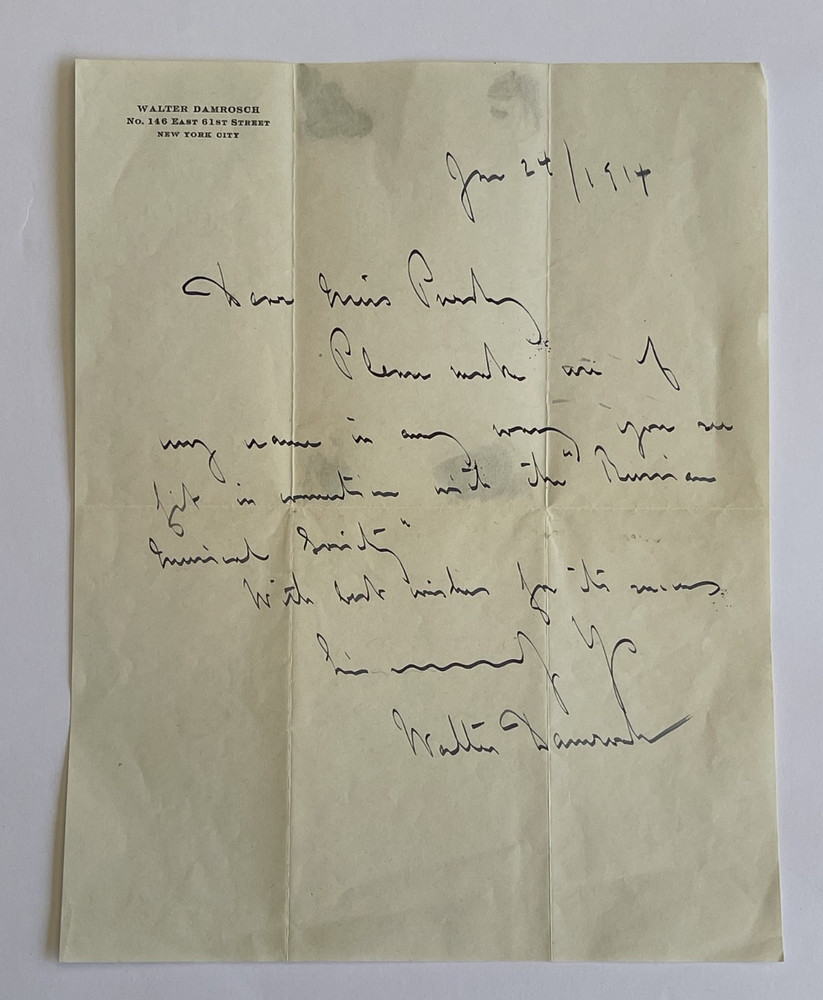 WALTER DAMROSCH
No. 146 East 61st Street
NEW YORK CITY
Jan 24/1914
Dear Miss Purdy
Please make use of
my name in any way you see
fit in connection with the "Russian
Musical Society"
With best wishes for its success
Sincerely Yrs
Walter Damrosch